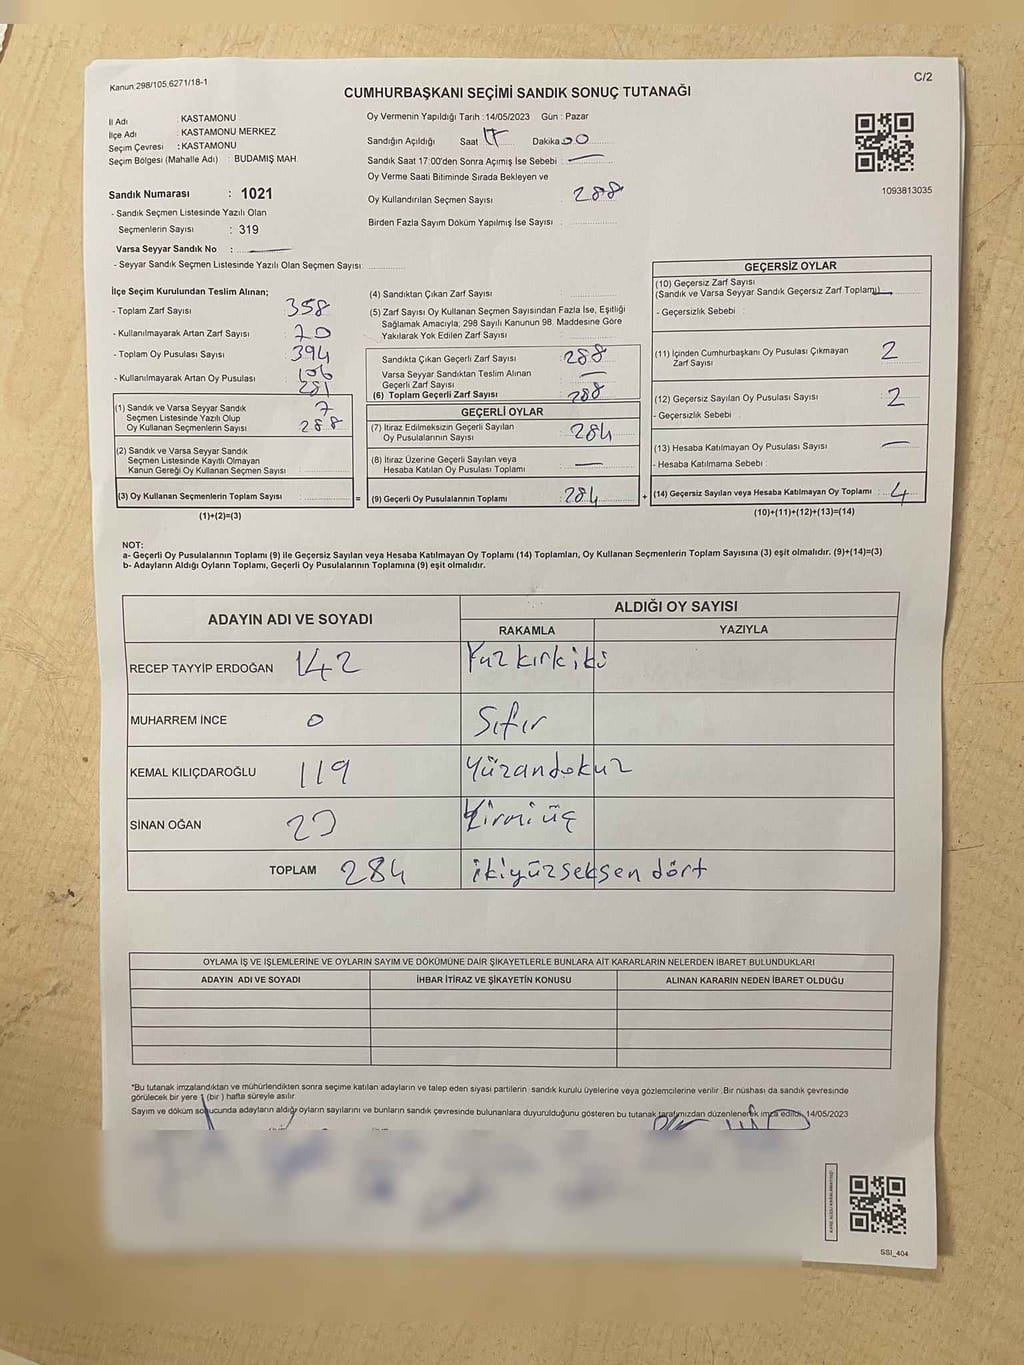 Kanun 298/105,6271/18-1
C/2
CUMHURBAŞKANI SEÇİMİ SANDIK SONUÇ TUTANAĞI
İl Adı : KASTAMONU
İlçe Adı : KASTAMONU MERKEZ
Seçim Çevresi : KASTAMONU
Seçim Bölgesi (Mahalle Adı) : BUDAMIŞ MAH.
Sandık Numarası : 1021
- Sandık Seçmen Listesinde Yazılı Olan
Seçmenlerin Sayısı : 319
Varsa Seyyar Sandık No :
- Seyyar Sandık Seçmen Listesinde Yazılı Olan Seçmen Sayısı
Oy Vermenin Yapıldığı Tarih : 14/05/2023 Gün : Pazar
Sandığın Açıldığı Saat 17 Dakika 00
Sandık Saat 17:00'den Sonra Açımış İse Sebebi :
Oy Verme Saati Bitiminde Sırada Bekleyen ve
Oy Kullandırılan Seçmen Sayısı : 288
Birden Fazla Sayım Döküm Yapılmış İse Sayısı :
1093813035
İlçe Seçim Kurulundan Teslim Alınan;
- Toplam Zarf Sayısı : 358
- Kullanılmayarak Artan Zarf Sayısı : 70
- Toplam Oy Pusulası Sayısı : 394
- Kullanılmayarak Artan Oy Pusulası : 106
281
(1) Sandık ve Varsa Seyyar Sandık 7
Seçmen Listesinde Yazılı Olup
Oy Kullanan Seçmenlerin Sayısı : 288
(2) Sandık ve Varsa Seyyar Sandık
Seçmen Listesinde Kayıtlı Olmayan
Kanun Gereği Oy Kullanan Seçmen Sayısı :
(3) Oy Kullanan Seçmenlerin Toplam Sayısı : =
(1)+(2)=(3)
(4) Sandıktan Çıkan Zarf Sayısı :
(5) Zarf Sayısı Oy Kullanan Seçmen Sayısından Fazla İse, Eşitliği
Sağlamak Amacıyla; 298 Sayılı Kanunun 98. Maddesine Göre
Yakılarak Yok Edilen Zarf Sayısı :
Sandıkta Çıkan Geçerli Zarf Sayısı : 288
Varsa Seyyar Sandıktan Teslim Alınan
Geçerli Zarf Sayısı
(6) Toplam Geçerli Zarf Sayısı : 288
GEÇERLİ OYLAR
(7) İtiraz Edilmeksizin Geçerli Sayılan
Oy Pusulalarının Sayısı : 284
(8) İtiraz Üzerine Geçerli Sayılan veya
Hesaba Katılan Oy Pusulası Toplamı :
(9) Geçerli Oy Pusulalarının Toplamı : 284 +
GEÇERSİZ OYLAR
(10) Geçersiz Zarf Sayısı
(Sandık ve Varsa Seyyar Sandık Geçersiz Zarf Toplamı)
- Geçersizlik Sebebi :
(11) İçinden Cumhurbaşkanı Oy Pusulası Çıkmayan 2
Zarf Sayısı
(12) Geçersiz Sayılan Oy Pusulası Sayısı : 2
- Geçersizlik Sebebi :
(13) Hesaba Katılmayan Oy Pusulası Sayısı :
- Hesaba Katılmama Sebebi :
(14) Geçersiz Sayılan veya Hesaba Katılmayan Oy Toplamı : 4
(10)+(11)+(12)+(13)=(14)
NOT:
a- Geçerli Oy Pusulalarının Toplamı (9) ile Geçersiz Sayılan veya Hesaba Katılmayan Oy Toplamı (14) Toplamları, Oy Kullanan Seçmenlerin Toplam Sayısına (3) eşit olmalıdır. (9)+(14)=(3)
b- Adayların Aldığı Oyların Toplamı, Geçerli Oy Pusulalarının Toplamına (9) eşit olmalıdır.
ADAYIN ADI VE SOYADI
ALDIĞI OY SAYISI
RAKAMLA YAZIYLA
RECEP TAYYİP ERDOĞAN 142 Yüz kırk iki
MUHARREM İNCE 0 Sıfır
KEMAL KILIÇDAROĞLU 119 Yüzondokuz
SİNAN OĞAN 23 Yirmi üç
TOPLAM 284 ikiyüzseksen dört
OYLAMA İŞ VE İŞLEMLERİNE VE OYLARIN SAYIM VE DÖKÜMÜNE DAİR ŞİKAYETLERLE BUNLARA AİT KARARLARIN NELERDEN İBARET BULUNDUKLARI
ADAYIN ADI VE SOYADI İHBAR İTİRAZ VE ŞİKAYETİN KONUSU ALINAN KARARIN NEDEN İBARET OLDUĞU
*Bu tutanak imzalandıktan ve mühürlendikten sonra seçime katılan adayların ve talep eden siyasi partilerin sandık kurulu üyelerine veya gözlemcilerine verilir. Bir nüshası da sandık çevresinde
görülecek bir yere 1 (bir) hafta süreyle asılır.
Sayım ve döküm sonucunda adayların aldığı oyların sayılarını ve bunların sandık çevresinde bulunanlara duyurulduğunu gösteren bu tutanak tarafımızdan düzenlenerek imza edildi. 14/05/2023
SSI_404